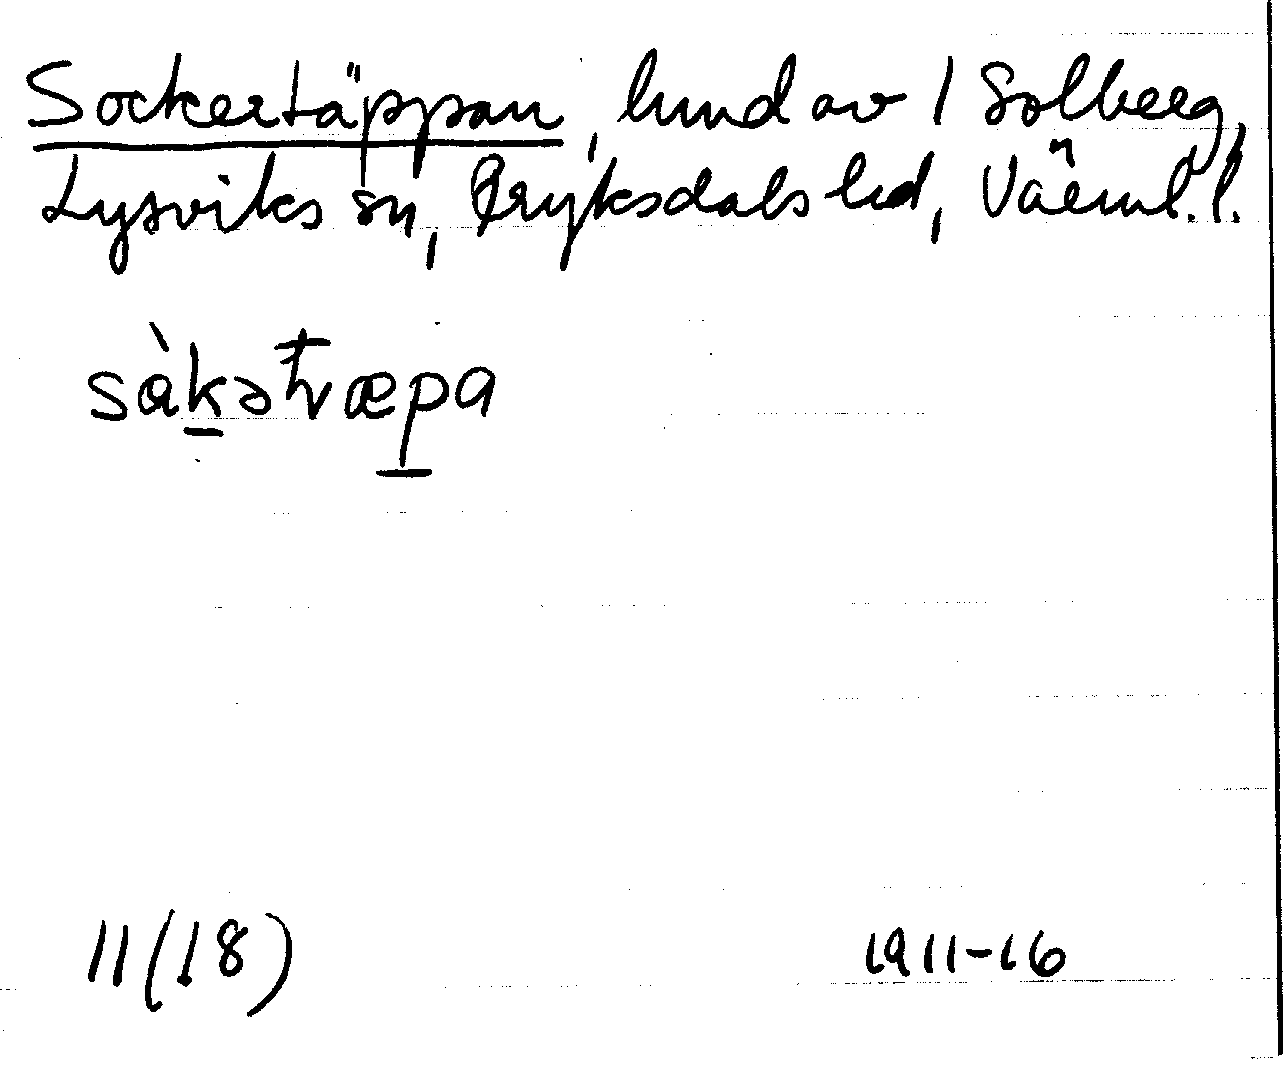 Sockertäppan, lund av 1 Solberg,
Lysviks sn, Fryksdals hd, Värml. l.
sàkətæpa
11(18) 1911-16